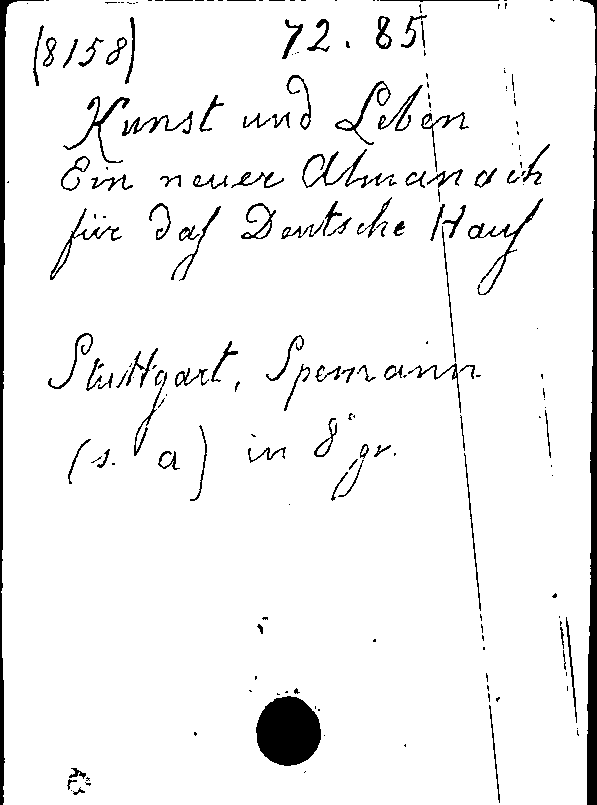 (8158) 72.85
Kunst und Leben
Ein neuer Almanach
für das Deutsche Haus
Stuttgart, Spemann
(s. a) in 8° gr.